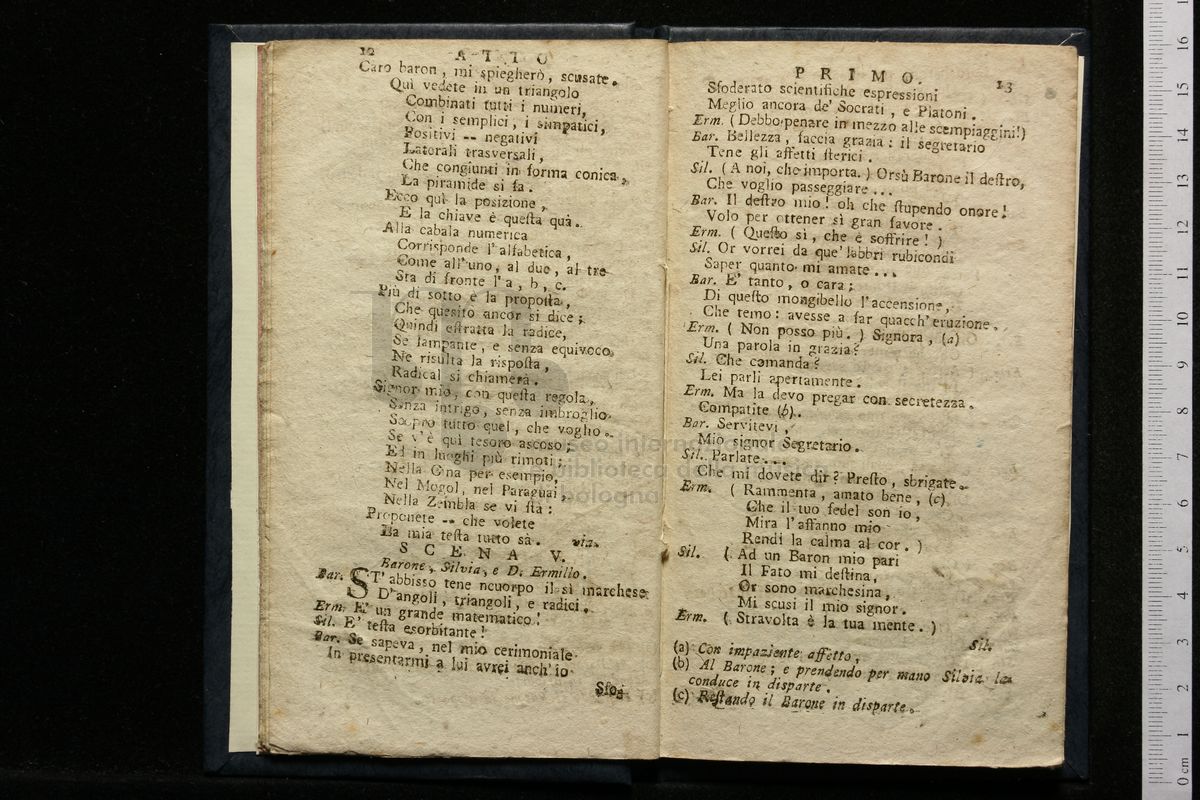 12 ATTO
Caro baron, mi spiegherò, scusate.
Qui vedete in un triangolo
Combinati tutti i numeri,
Con i semplici, i simpatici,
Positivi -- negativi
Laterali trasversali,
Che congiunti in forma conica,
La piramide si fa.
Ecco quì la posizione,
E la chiave è questa quà.
Alla cabala numerica
Corrisponde l'alfabetica,
Come all'uno, al due, al tre
Sta di fronte l'a, b, c.
Più di sotto è la proposta,
Che quesito ancor si dice;
Quindi estratta la radice,
Se lampante, e senza equivoco,
Ne risulta la risposta,
Radical si chiamerà.
Signor mio, con questa regola,
Senza intrigo, senza imbroglio
Scopro tutto quel, che voglio.
Se v'è quì tesoro ascoso;
Ed in luoghi più rimoti;
Nella Cina per esempio,
Nel Mogol, nel Paraguai,
Nella Zembla se vi sta:
Proponete -- che volete
La mia testa tutto sà. via.
SCENA V.
Barone, Silvia, e D. Ermilio.
Bar. ST'abbisso tene ncuorpo il sì marchese
D'angoli, triangoli, e radici.
Erm. E' un grande matematico!
Sil. E' testa esorbitante!
Bar. Se sapeva, nel mio cerimoniale
In presentarmi a lui avrei anch'io
Sfo-
PRIMO. 13
Sfoderato scientifiche espressioni
Meglio ancora de' Socrati, e Platoni.
Erm. (Debbo penare in mezzo alle scempiaggini!)
Bar. Bellezza, faccia grazia: il segretario
Tene gli affetti sterici.
Sil. (A noi, che importa.) Orsù Barone il destro,
Che voglio passeggiare...
Bar. Il destro mio! oh che stupendo onore!
Volo per ottener sì gran favore.
Erm. (Questo sì, che è soffrire!)
Sil. Or vorrei da que' labbri rubicondi
Saper quanto mi amate...
Bar. E' tanto, o cara;
Di questo mongibello l'accensione,
Che temo: avesse a far quacch'eruzione.
Erm. (Non posso più.) Signora, (a)
Una parola in grazia?
Sil. Che comanda?
Lei parli apertamente.
Erm. Ma la devo pregar con secretezza.
Compatite (b).
Bar. Servitevi,
Mio signor Segretario.
Sil. Parlate...
Che mi dovete dir? Presto, sbrigate.
Erm. (Rammenta, amato bene, (c)
Che il tuo fedel son io,
Mira l'affanno mio
Rendi la calma al cor.)
Sil. (Ad un Baron mio pari
Il Fato mi destina,
Or sono marchesina,
Mi scusi il mio signor.
Erm. (Stravolta è la tua mente.)
Sil.
(a) Con impaziente affetto,
(b) Al Barone; e prendendo per mano Silvia la
conduce in disparte.
(c) Restando il Barone in disparte.
museo internazionale
biblioteca della musica
bologna
0 cm 1 2 3 4 5 6 7 8 9 10 11 12 13 14 15 16